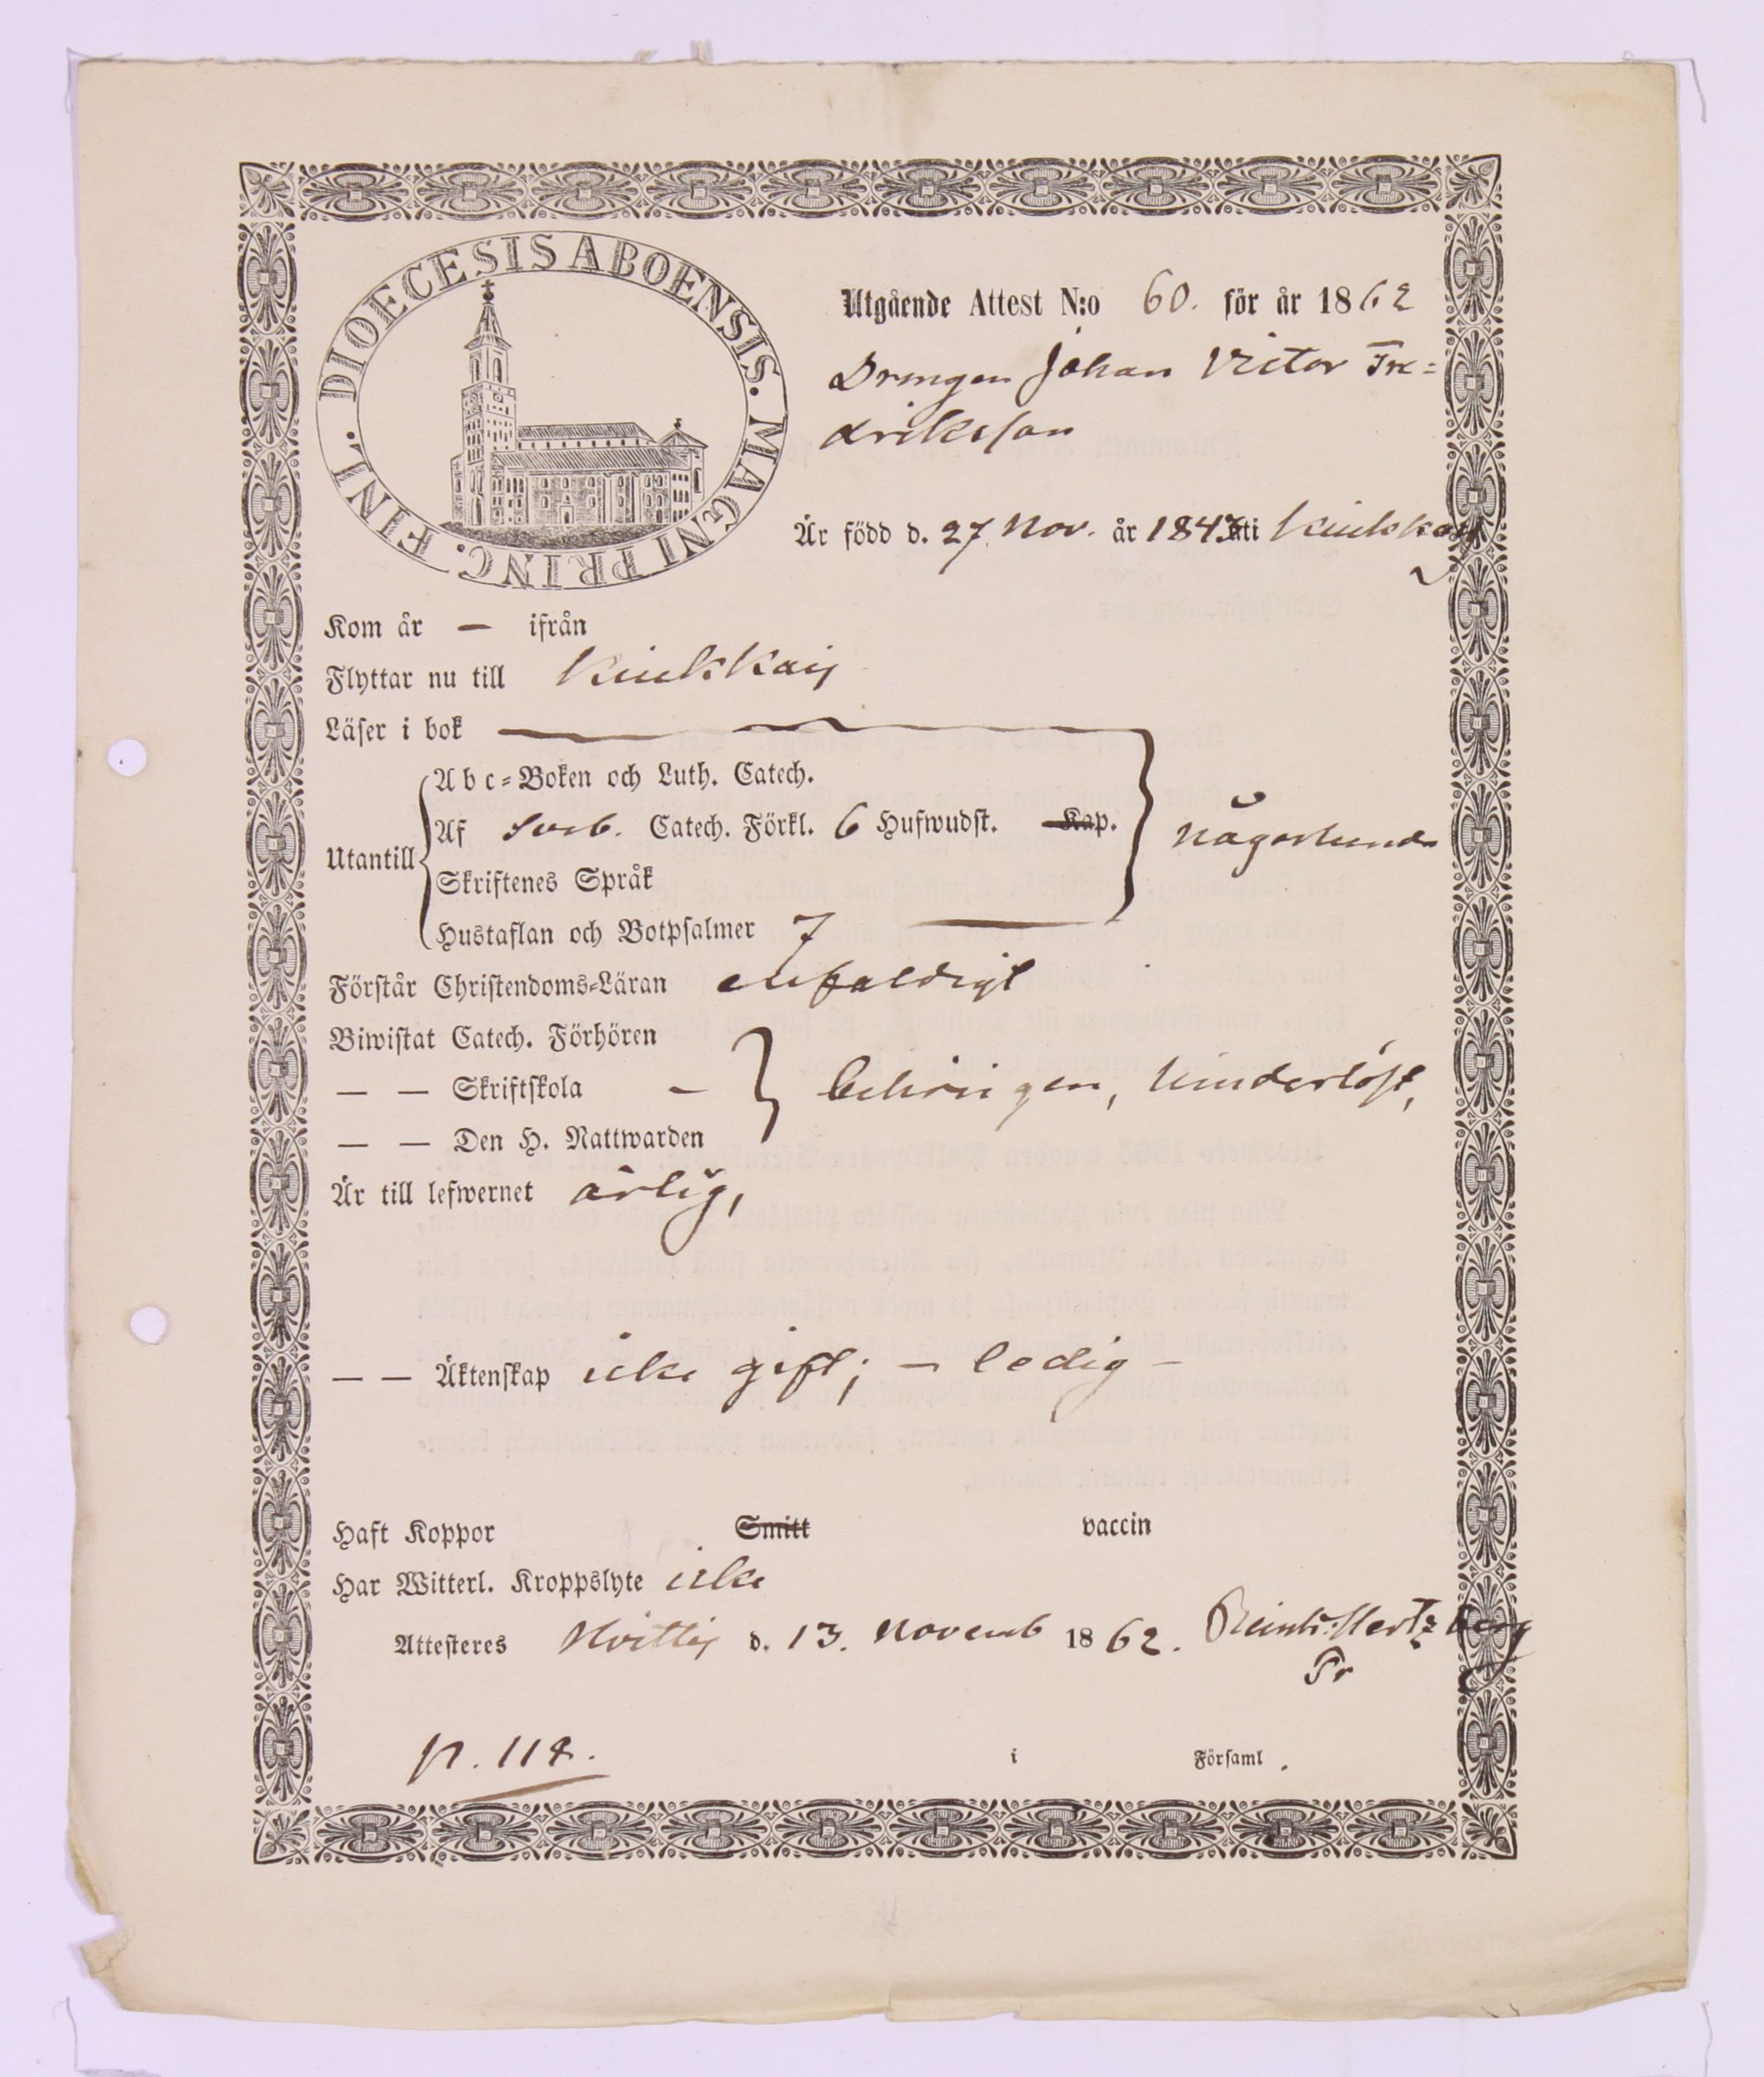 DIOECESIS ABOENSIS. MAGNI PRINC. FINL.
Utgående Attest N:o 60. för år 1862
Drengen Johan Victor Fre=
driksson
Är född d. 27. Nov. år 1843 uti Kiukkais
Kom år — ifrån
Flyttar nu till Kiukkais
Läser i bok
Abc=Boken och Luth. Catech.
Af Sveb. Catech. Förkl. 6 Hufwudst. Kap.
Utantill
någorlunda
Skriftenes Språk
Hustaflan och Botpsalmer 7
Förstår Christendoms=Läran enfaldigt
Biwistat Catech. Förhören
— — Skriftskola — behörigen, hinderlöst,
— — Den H. Nattwarden
Är till lefwernet ärlig,
— — Äktenskap icke gift; — ledig —
Haft Koppor Smitt vaccin
Har Witterl. Kroppslyte icke
Attesteres Hvittis d. 13. Novemb 1862. Reinh. Hertzberg
Pr
p. 118. i Församl.